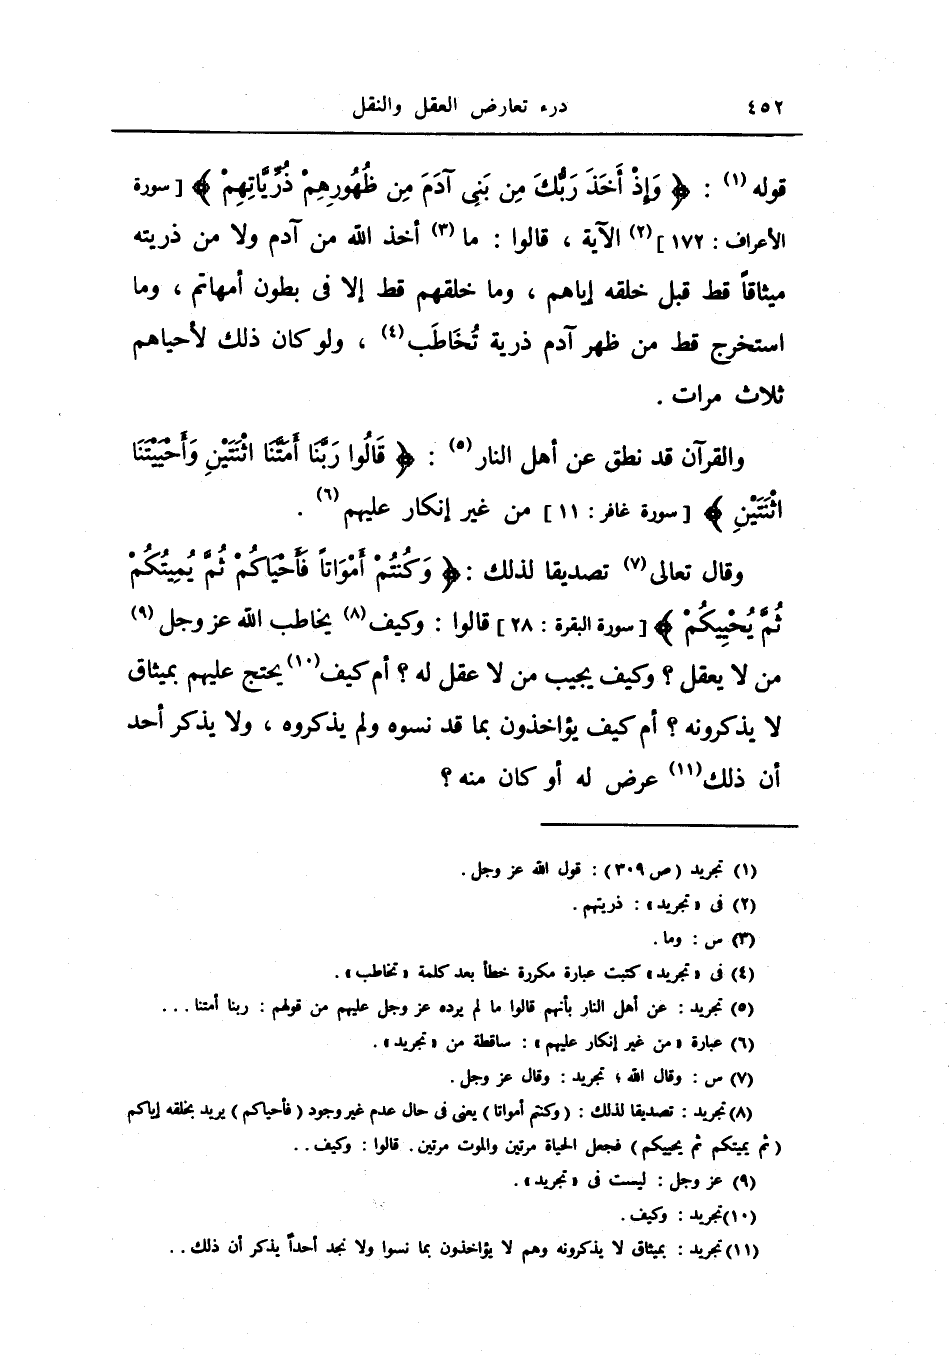 ٤٥٢ درء تعارض العقل والنقل
قوله(١) : ﴿ وَإِذْ أَخَذَ رَبُّكَ مِن بَنِى آدَمَ مِن ظُهُورِهِمْ ذُرِّيَّاتِهِمْ ﴾ [ سورة
الأعراف : ١٧٢ ](٢) الآية ، قالوا : ما(٣) أخذ الله من آدم ولا من ذريته
ميثاقاً قط قبل خلقه إياهم ، وما خلقهم قط إلا فى بطون أمهاتم ، وما
استخرج قط من ظهر آدم ذرية تُخَاطَب(٤) ، ولو كان ذلك لأحياهم
ثلاث مرات .
والقرآن قد نطق عن أهل النار(٥) : ﴿ قَالُوا رَبَّنَا أَمَتَّنَا اثْنَتَيْنِ وَأَحْيَيْتَنَا
اثْنَتَيْنِ ﴾ [ سورة غافر : ١١ ] من غير إنكار عليهم(٦) .
وقال تعالى(٧) تصديقا لذلك : ﴿ وَكُنتُمْ أَمْوَاتاً فَأَحْيَاكُمْ ثُمَّ يُمِيتُكُمْ
ثُمَّ يُحْيِيكُمْ ﴾ [ سورة البقرة : ٢٨ ] قالوا : وكيف(٨) يخاطب الله عز وجل(٩)
من لا يعقل ؟ وكيف يجيب من لا عقل له ؟ أم كيف(١٠) يحتج عليهم بميثاق
لا يذكرونه ؟ أم كيف يؤاخذون بما قد نسوه ولم يذكروه ، ولا يذكر أحد
أن ذلك(١١) عرض له أو كان منه ؟
(١) تجريد (ص ٣٠٩) : قول الله عز وجل .
(٢) فى « تجريد » : ذريتهم .
(٣) س : وما .
(٤) فى « تجريد » كتبت عبارة مكررة خطأ بعد كلمة « تخاطب » .
(٥) تجريد : عن أهل النار بأنهم قالوا ما لم يرده عز وجل عليهم من قولهم : ربنا أمتنا . . .
(٦) عبارة « من غير إنكار عليهم » : ساقطة من « تجريد » .
(٧) س : وقال الله ؛ تجريد : وقال عز وجل .
(٨) تجريد : تصديقا لذلك : ( وكنتم أمواتا ) يعنى فى حال عدم غير وجود ( فأحياكم ) يريد بخلقه إياكم
( ثم يميتكم ثم يحييكم ) فجعل الحياة مرتين والموت مرتين . قالوا : وكيف . .
(٩) عز وجل : ليست فى « تجريد » .
(١٠) تجريد : وكيف .
(١١) تجريد : بميثاق لا يذكرونه وهم لا يؤاخذون بما نسوا ولا نجد أحداً يذكر أن ذلك . .